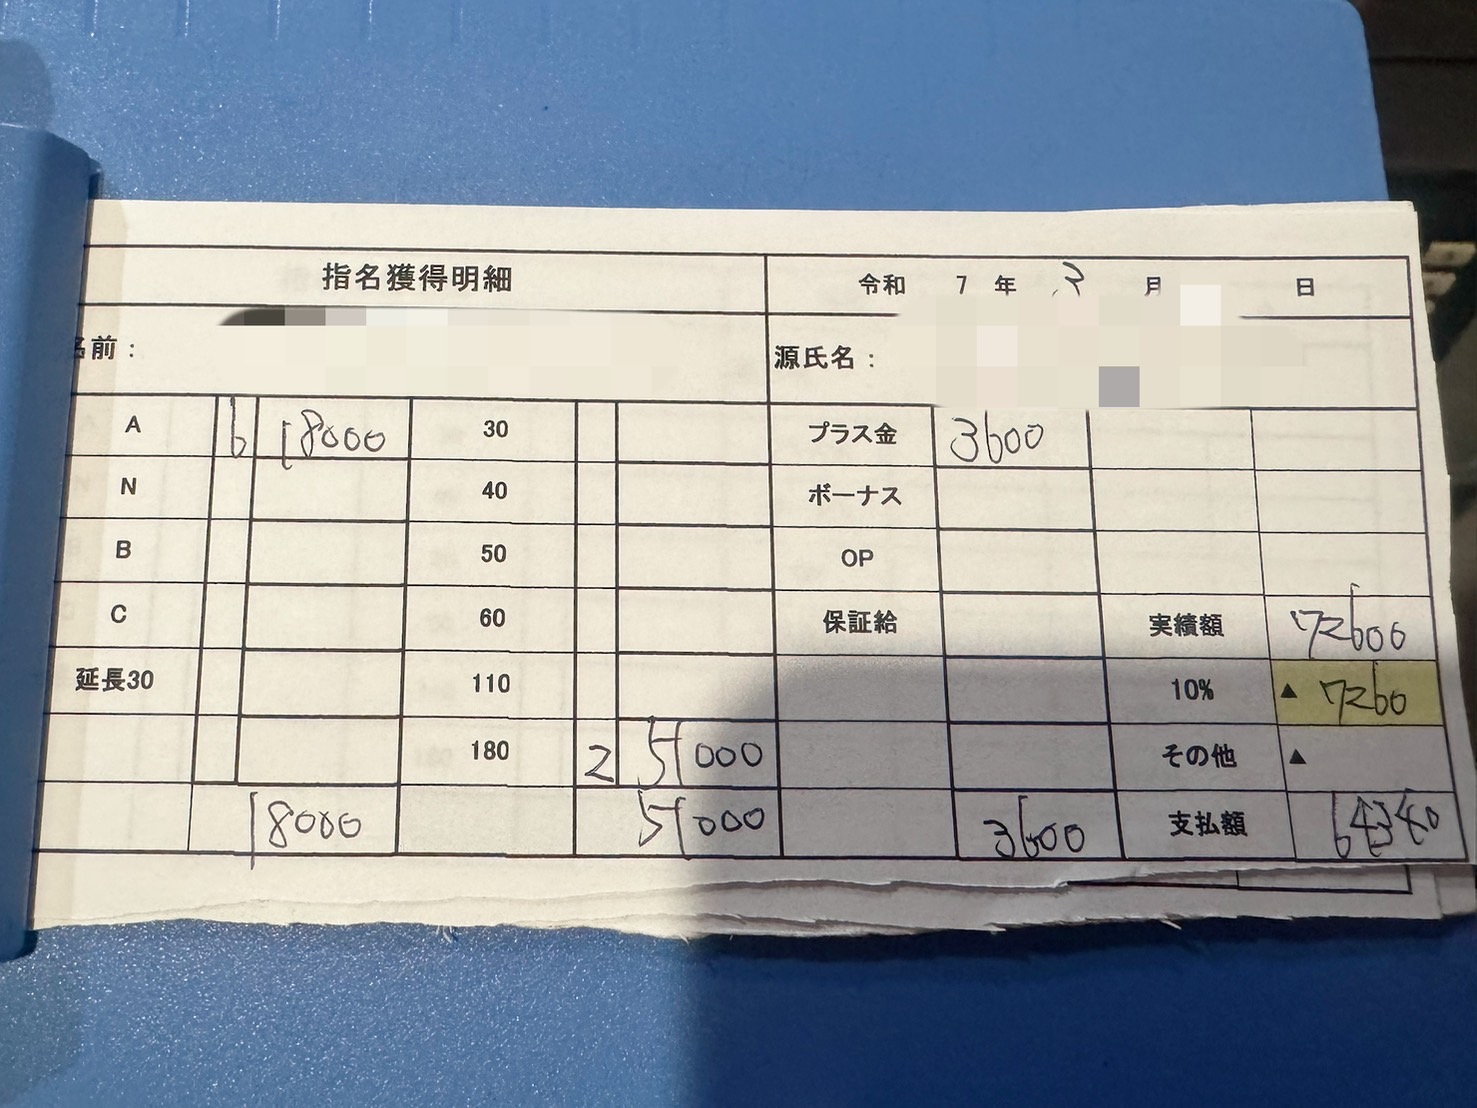 指名獲得明細 令和 7 年 3 月 日
名前： 源氏名：
A 6 18000 30 プラス金 3600
N 40 ボーナス
B 50 OP
C 60 保証給 実績額 72600
延長30 110 10% ▲ 7260
180 2 51000 その他 ▲
18000 51000 3600 支払額 64340